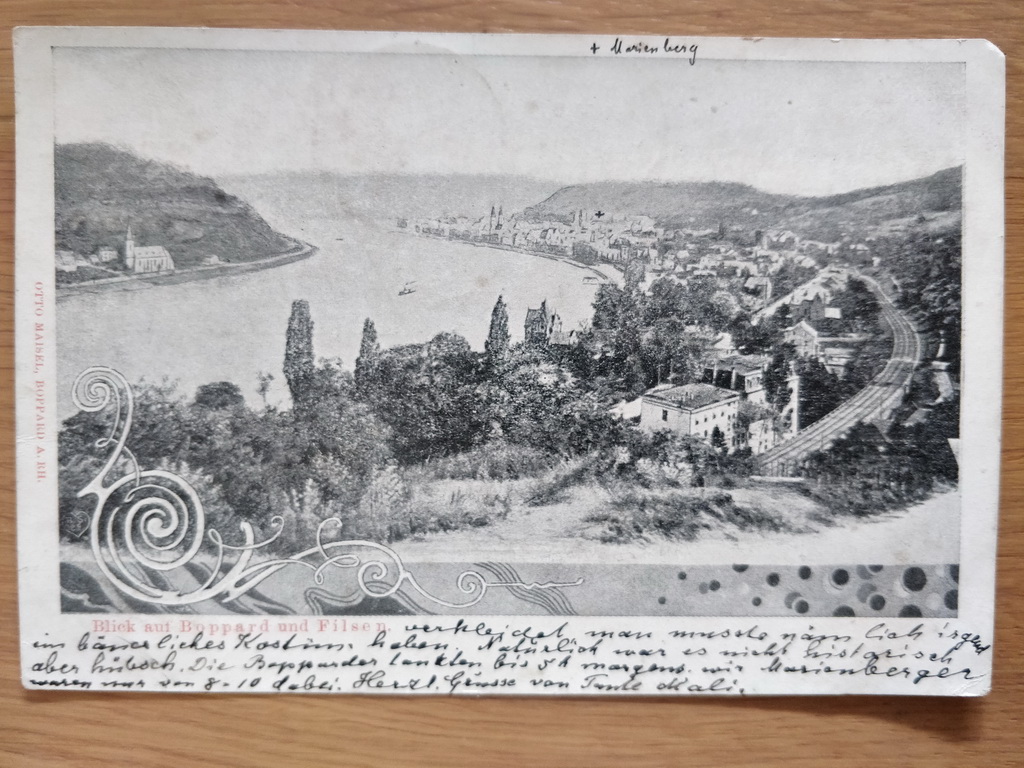 + Marienberg
OTTO MAISEL, BOPPARD A. RH.
Blick auf Boppard und Filsen.
verkleidet, man musste näm lich irgend
ein bäuerliches Kostüm haben. Natürlich war es nicht historisch
aber hübsch. Die Bopparder tankten bis 5h morgens. wir Marienberger
waren nur von 8-10 dabei. Herzl. Grüsse von Tante Mali.